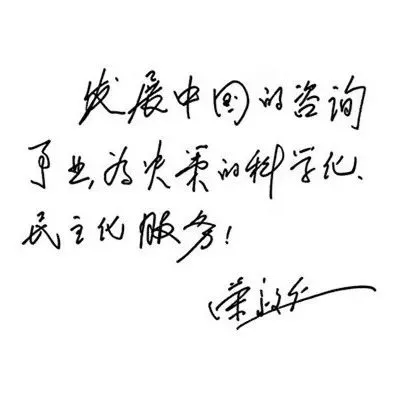 发展中国的咨询
事业,为决策的科学化、
民主化服务!
荣毅仁